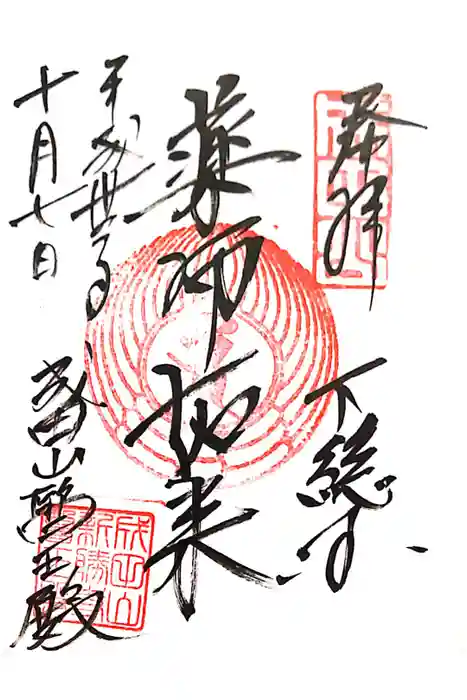 奉拝
下総国
薬師如来
平成丗年
十月七日
成田山醫王殿
成田山
新勝寺